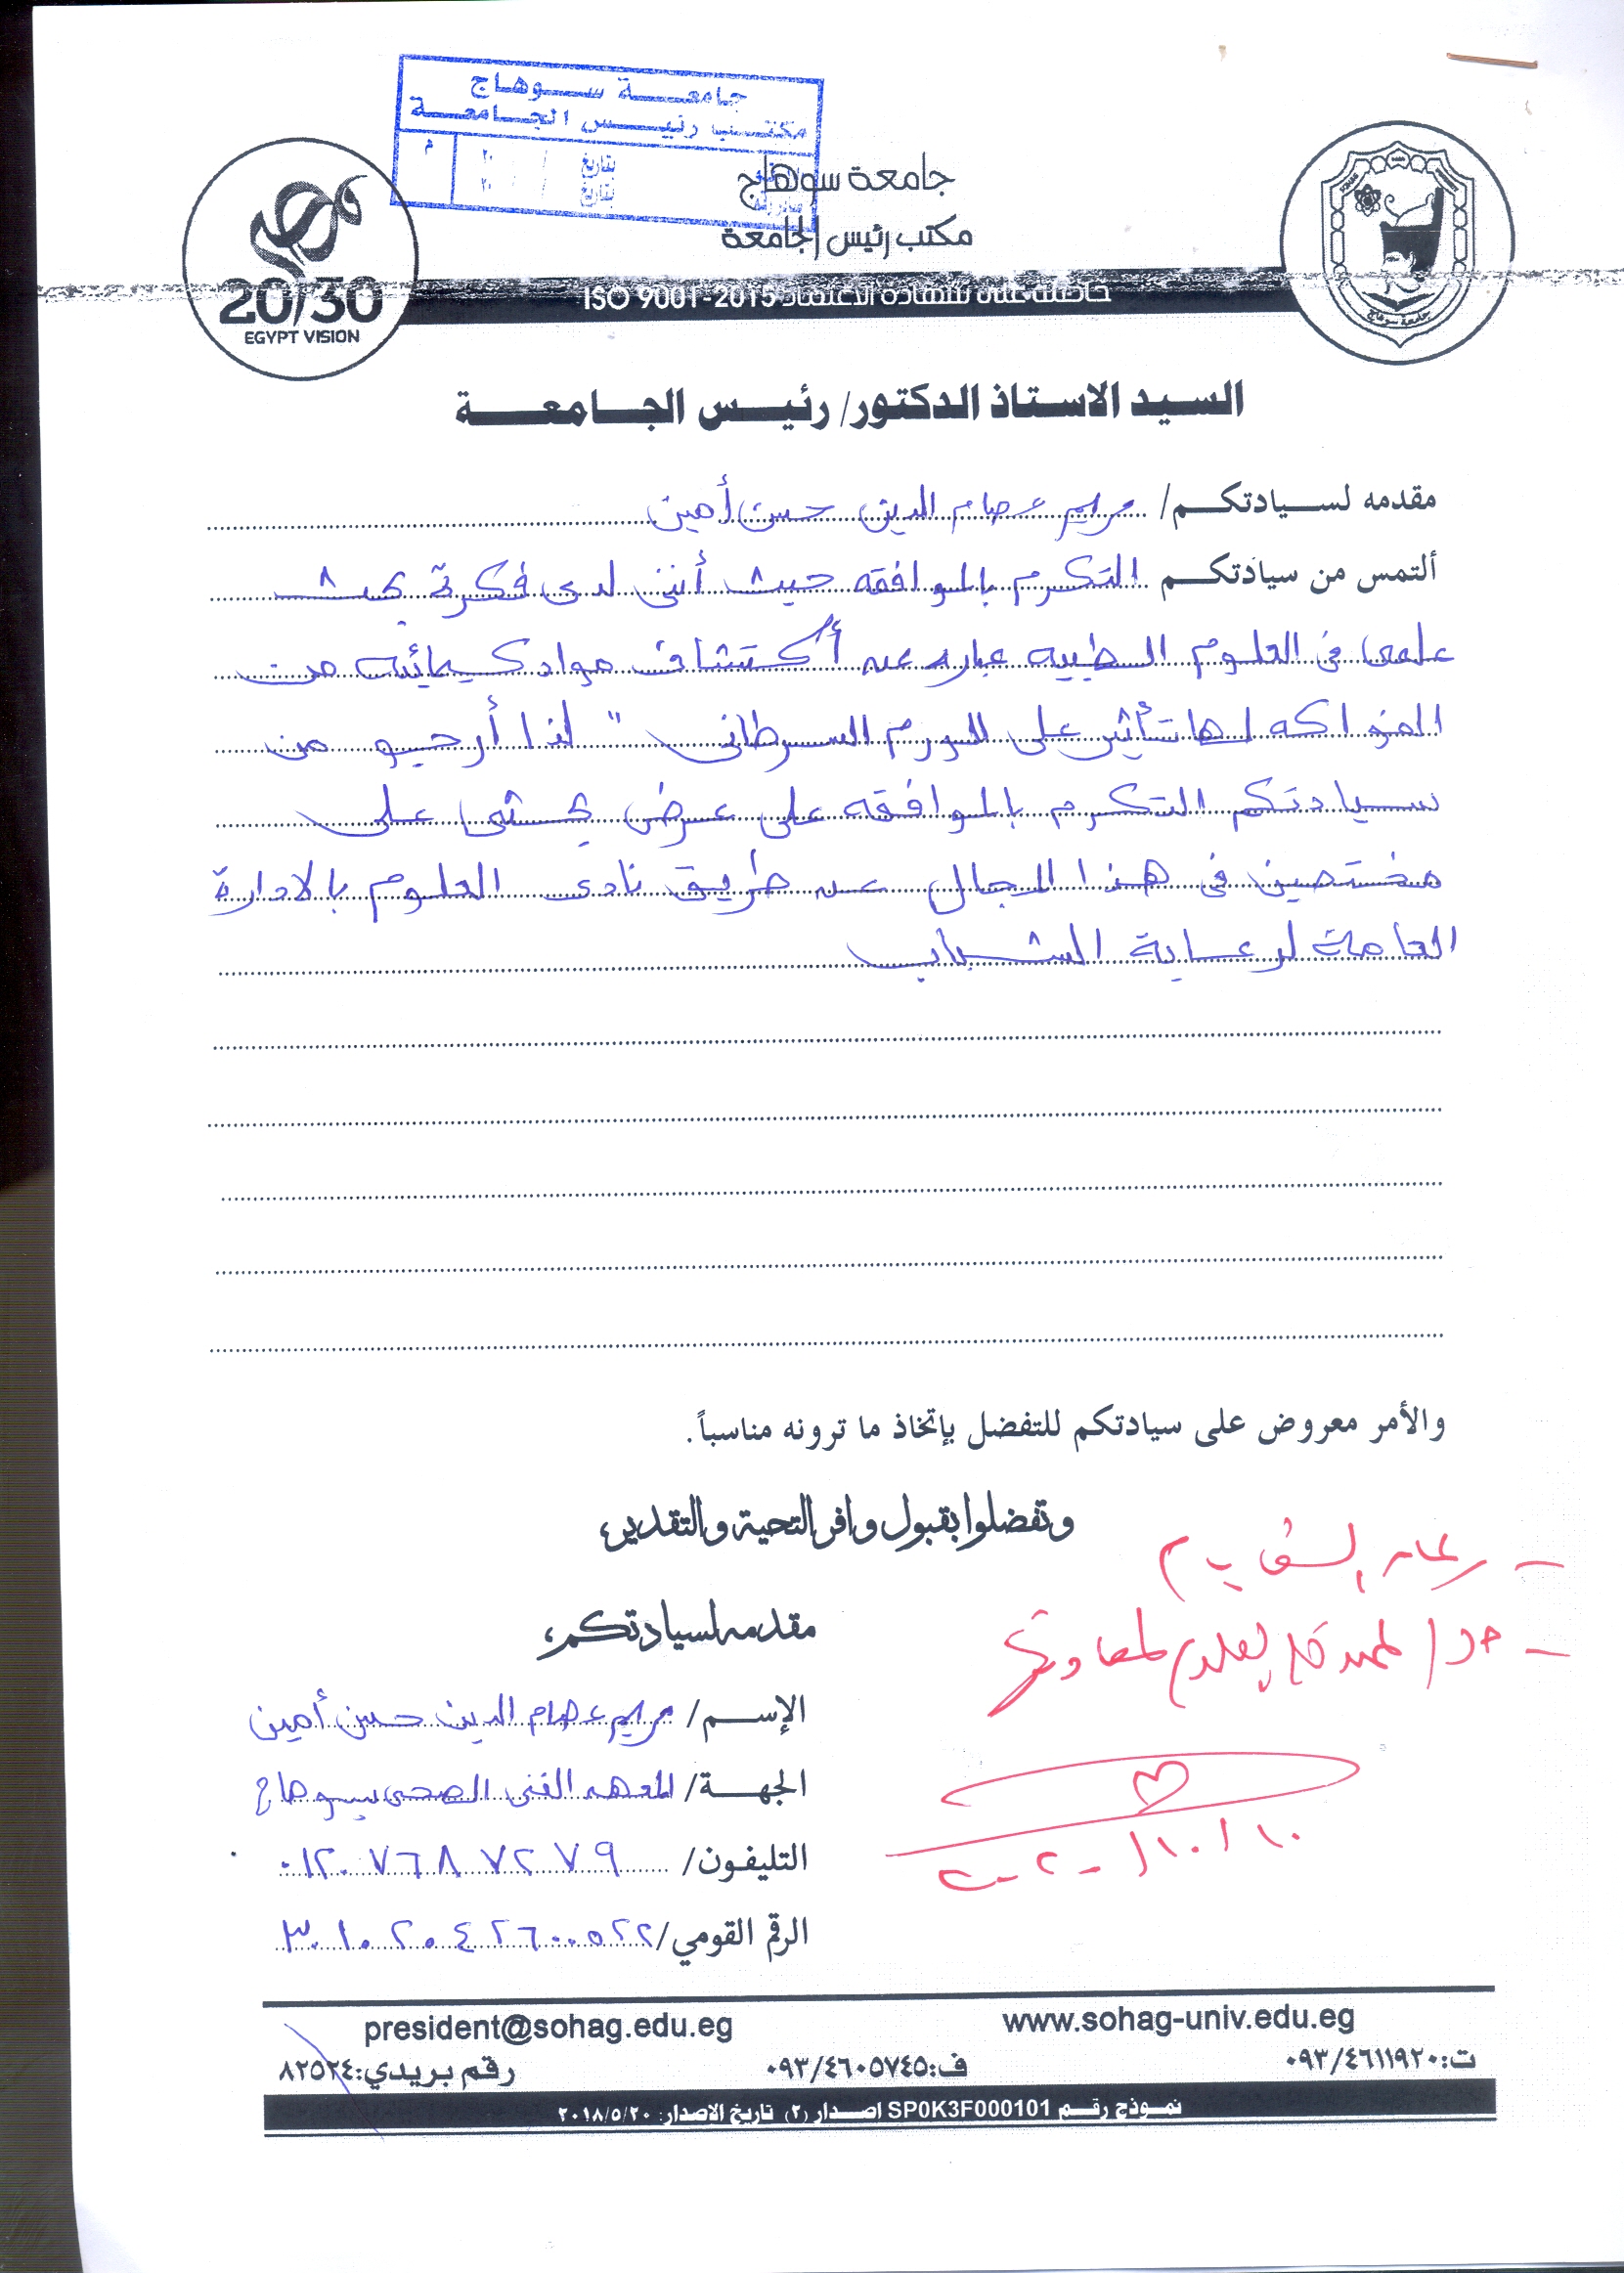 جامعة سوهاج
مكتب رئيس الجامعة
بتاريخ / / ٢٠ م
بتاريخ / / ٢٠
جامعة سوهاج
مكتب رئيس الجامعة
حاصلة على شهادة الاعتماد ISO 9001-2015
20/30
EGYPT VISION
جامعة سوهاج
السيد الاستاذ الدكتور/ رئيس الجامعة
مقدمه لسيادتكم/ مريم عصام الدين حسن أمين
ألتمس من سيادتكم التكرم بالموافقه حيث أننى لدى فكرة بحث
علمى فى العلوم الطبيه عباره عن أكتشاف مواد كيمائيه من
الفواكه لها تأثير على الورم السرطانى " لذا أرجو من
سيادتكم التكرم بالموافقه على عرض بحثى على
مختصين فى هذا المجال عن طريق نادى العلوم بالادارة
العامة لرعاية الشباب
والأمر معروض على سيادتكم للتفضل بإتخاذ ما ترونه مناسباً.
وتفضلوا بقبول وافر التحية والتقدير،
مقدمه لسيادتكم،
الإسم/ مريم عصام الدين حسن أمين
الجهة/ المعهد الفنى الصحى بسوهاج
التليفون/ ٠١٢٠٧٦٨٧٢٧٩
الرقم القومي/ ٣٠١٠٢٠٤٢٦٠٠٥٢٢
- رعاية الشباب
١٠/١٠/٢٠٢٠
president@sohag.edu.eg www.sohag-univ.edu.eg
ت:٠٩٣/٤٦١١٩٢٠ ف:٠٩٣/٤٦٠٥٧٤٥ رقم بريدي:٨٢٥٢٤
نموذج رقم SP0K3F000101 اصدار (٢) تاريخ الاصدار: ٢٠١٨/٥/٢٠